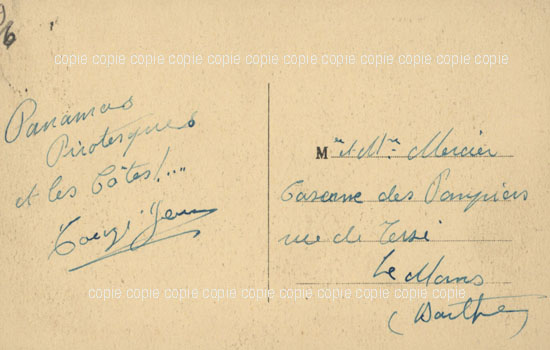 copie copie copie copie copie copie copie copie copie copie copie copie copie copie copie
Panamas
Pirotesques
et les Côtes!....
Mr et Mme Mercier
Caserne des Pompiers
rue de Tessé
Le Mans
(Sarthe)
copie copie copie copie copie copie copie copie copie copie copie copie copie